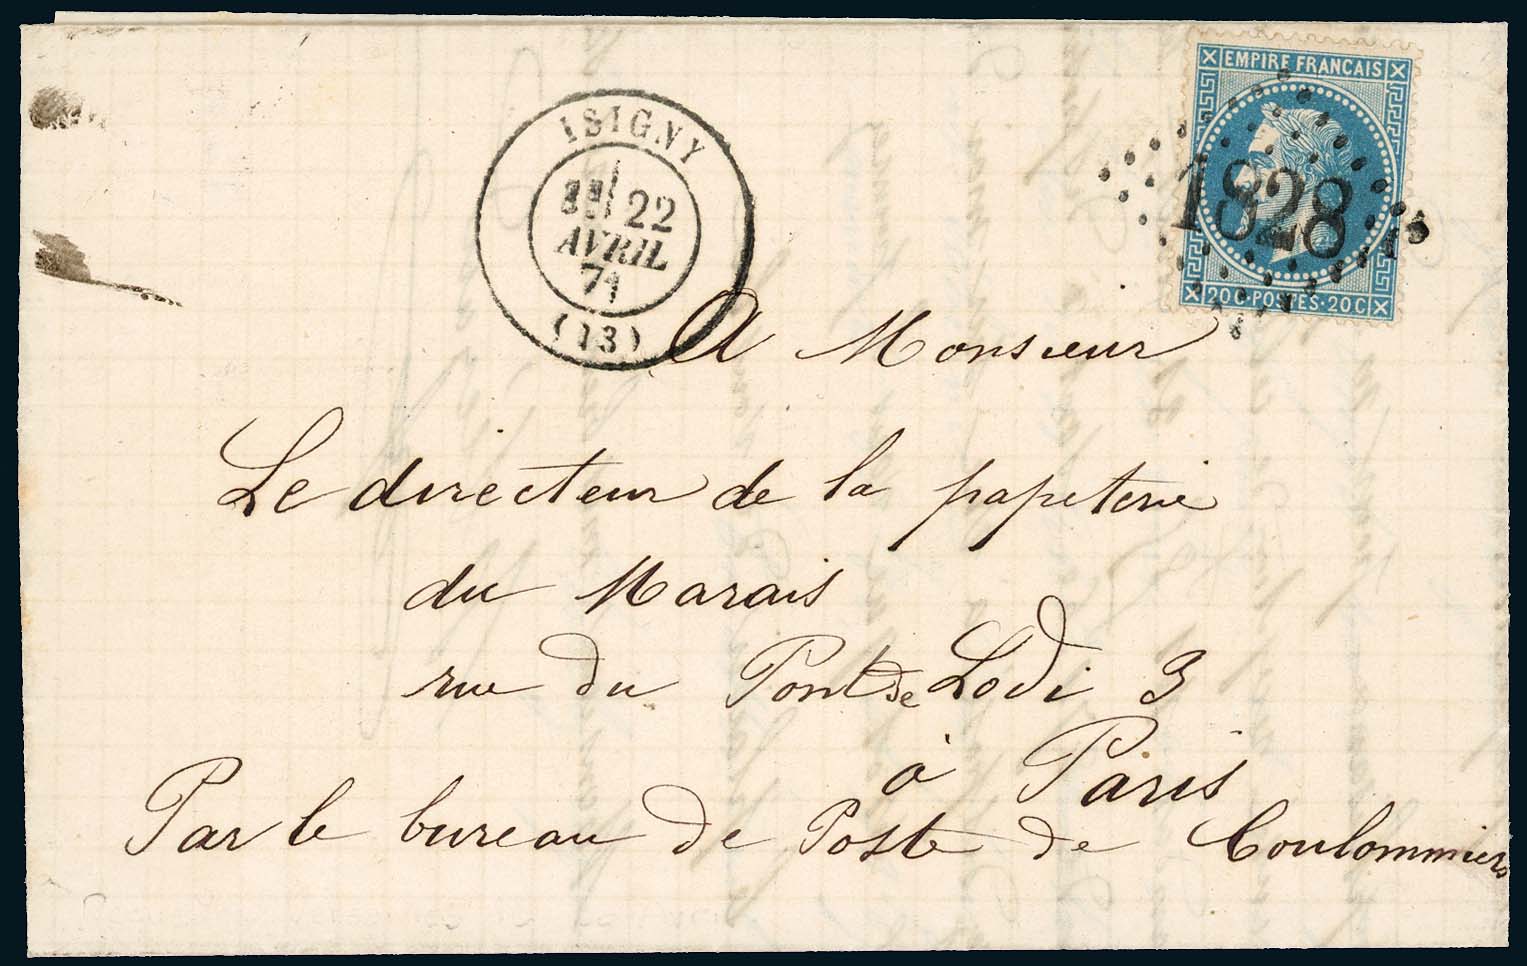 EMPIRE FRANCAIS
1828
20 C · POSTES · 20 C
ISIGNY
22
AVRIL
71
(13)
A Monsieur
Le directeur de la papeterie
du Marais
rue du Pont de Lodi 3
à Paris
Par le bureau de Poste de Coulommiers